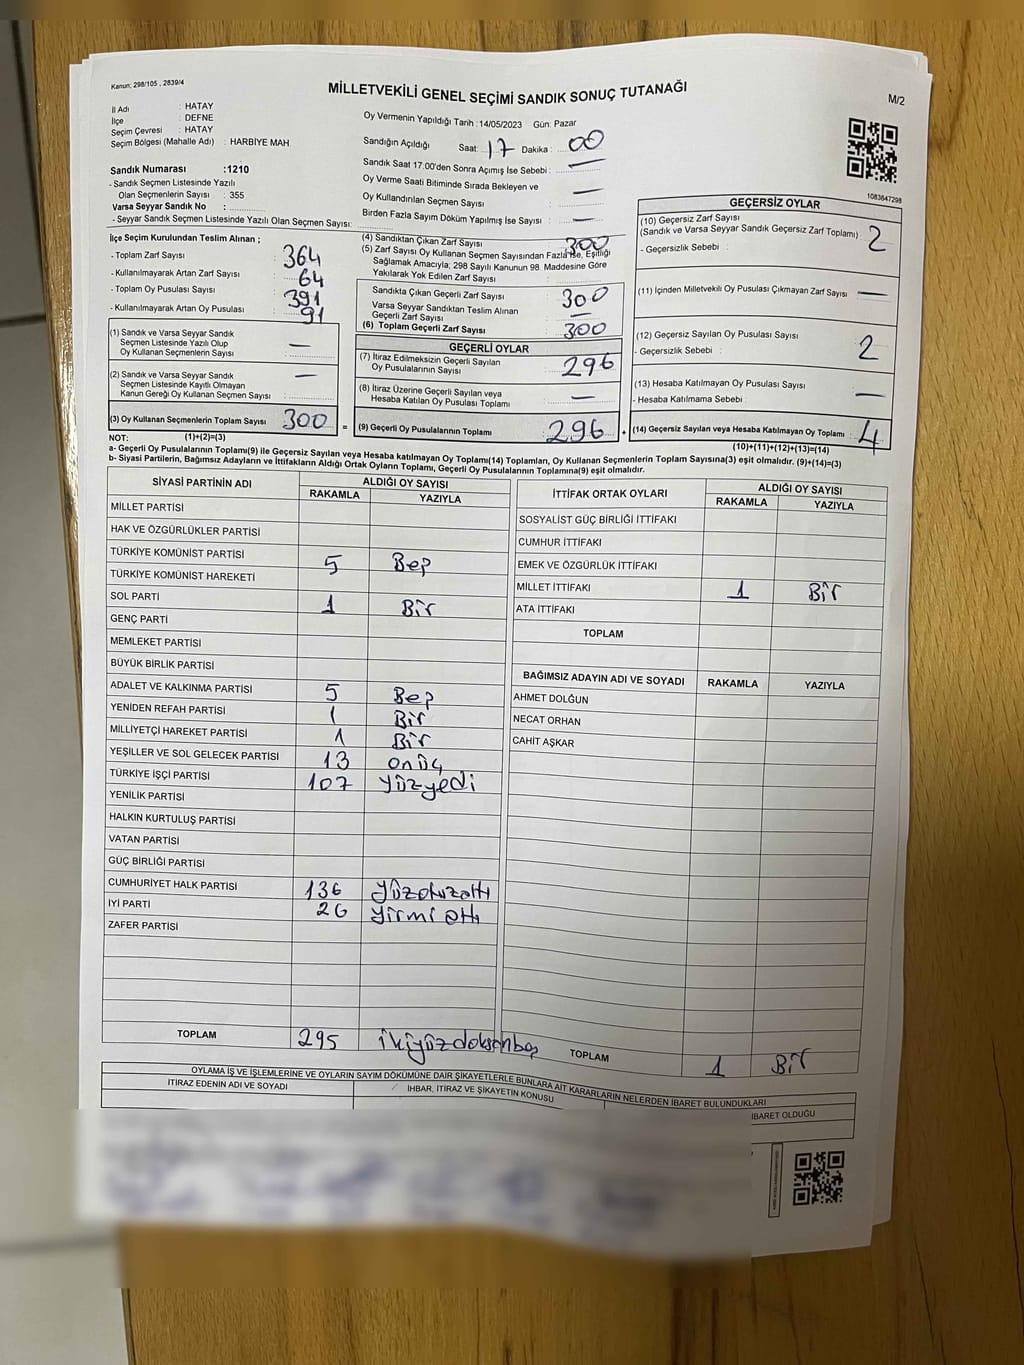 Kanun: 298/105 , 2839/4
MİLLETVEKİLİ GENEL SEÇİMİ SANDIK SONUÇ TUTANAĞI
M/2
İl Adı : HATAY
İlçe : DEFNE
Seçim Çevresi : HATAY
Seçim Bölgesi (Mahalle Adı) : HARBİYE MAH.
Sandık Numarası :1210
- Sandık Seçmen Listesinde Yazılı
Olan Seçmenlerin Sayısı : 355
Varsa Seyyar Sandık No :
- Seyyar Sandık Seçmen Listesinde Yazılı Olan Seçmen Sayısı:
Oy Vermenin Yapıldığı Tarih :14/05/2023 Gün: Pazar
Sandığın Açıldığı Saat: 17 Dakika : 00
Sandık Saat 17:00'den Sonra Açımış İse Sebebi : —
Oy Verme Saati Bitiminde Sırada Bekleyen ve
Oy Kullandırılan Seçmen Sayısı : —
Birden Fazla Sayım Döküm Yapılmış İse Sayısı : —
1083647298
İlçe Seçim Kurulundan Teslim Alınan ;
- Toplam Zarf Sayısı : 364
- Kullanılmayarak Artan Zarf Sayısı : 64
- Toplam Oy Pusulası Sayısı : 391
- Kullanılmayarak Artan Oy Pusulası : 91
(1) Sandık ve Varsa Seyyar Sandık
Seçmen Listesinde Yazılı Olup
Oy Kullanan Seçmenlerin Sayısı : —
(2) Sandık ve Varsa Seyyar Sandık
Seçmen Listesinde Kayıtlı Olmayan
Kanun Gereği Oy Kullanan Seçmen Sayısı : —
(3) Oy Kullanan Seçmenlerin Toplam Sayısı : 300
(1)+(2)=(3)
(4) Sandıktan Çıkan Zarf Sayısı : 300
(5) Zarf Sayısı Oy Kullanan Seçmen Sayısından Fazla ise, Eşitliği
Sağlamak Amacıyla; 298 Sayılı Kanunun 98. Maddesine Göre
Yakılarak Yok Edilen Zarf Sayısı :
Sandıkta Çıkan Geçerli Zarf Sayısı : 300
Varsa Seyyar Sandıktan Teslim Alınan
Geçerli Zarf Sayısı : —
(6) Toplam Geçerli Zarf Sayısı : 300
GEÇERLİ OYLAR
(7) İtiraz Edilmeksizin Geçerli Sayılan
Oy Pusulalarının Sayısı : 296
(8) İtiraz Üzerine Geçerli Sayılan veya
Hesaba Katılan Oy Pusulası Toplamı : —
= (9) Geçerli Oy Pusulalarının Toplamı : 296
GEÇERSİZ OYLAR
(10) Geçersiz Zarf Sayısı
(Sandık ve Varsa Seyyar Sandık Geçersiz Zarf Toplamı) : 2
- Geçersizlik Sebebi :
(11) İçinden Milletvekili Oy Pusulası Çıkmayan Zarf Sayısı : —
(12) Geçersiz Sayılan Oy Pusulası Sayısı : 2
- Geçersizlik Sebebi :
(13) Hesaba Katılmayan Oy Pusulası Sayısı : —
- Hesaba Katılmama Sebebi :
+ (14) Geçersiz Sayılan veya Hesaba Katılmayan Oy Toplamı : 4
(10)+(11)+(12)+(13)=(14)
NOT:
a- Geçerli Oy Pusulalarının Toplamı(9) ile Geçersiz Sayılan veya Hesaba katılmayan Oy Toplamı(14) Toplamları, Oy Kullanan Seçmenlerin Toplam Sayısına(3) eşit olmalıdır. (9)+(14)=(3)
b- Siyasi Partilerin, Bağımsız Adayların ve İttifakların Aldığı Ortak Oyların Toplamı, Geçerli Oy Pusulalarının Toplamına(9) eşit olmalıdır.
SİYASİ PARTİNİN ADI ALDIĞI OY SAYISI
RAKAMLA YAZIYLA
MİLLET PARTİSİ
HAK VE ÖZGÜRLÜKLER PARTİSİ
TÜRKİYE KOMÜNİST PARTİSİ 5 Beş
TÜRKİYE KOMÜNİST HAREKETİ
SOL PARTİ 1 Bir
GENÇ PARTİ
MEMLEKET PARTİSİ
BÜYÜK BİRLİK PARTİSİ
ADALET VE KALKINMA PARTİSİ 5 Beş
YENİDEN REFAH PARTİSİ 1 Bir
MİLLİYETÇİ HAREKET PARTİSİ 1 Bir
YEŞİLLER VE SOL GELECEK PARTİSİ 13 onüç
TÜRKİYE İŞÇİ PARTİSİ 107 Yüzyedi
YENİLİK PARTİSİ
HALKIN KURTULUŞ PARTİSİ
VATAN PARTİSİ
GÜÇ BİRLİĞİ PARTİSİ
CUMHURİYET HALK PARTİSİ 136 Yüzotuzaltı
İYİ PARTİ 26 Yirmi altı
ZAFER PARTİSİ
TOPLAM 295 ikiyüzdoksanbeş
İTTİFAK ORTAK OYLARI ALDIĞI OY SAYISI
RAKAMLA YAZIYLA
SOSYALİST GÜÇ BİRLİĞİ İTTİFAKI
CUMHUR İTTİFAKI
EMEK VE ÖZGÜRLÜK İTTİFAKI
MİLLET İTTİFAKI 1 Bir
ATA İTTİFAKI
TOPLAM
BAĞIMSIZ ADAYIN ADI VE SOYADI RAKAMLA YAZIYLA
AHMET DOLĞUN
NECAT ORHAN
CAHİT AŞKAR
TOPLAM 1 Bir
OYLAMA İŞ VE İŞLEMLERİNE VE OYLARIN SAYIM DÖKÜMÜNE DAİR ŞİKAYETLERLE BUNLARA AİT KARARLARIN NELERDEN İBARET BULUNDUKLARI
İTİRAZ EDENİN ADI VE SOYADI İHBAR, İTİRAZ VE ŞİKAYETİN KONUSU İBARET OLDUĞU